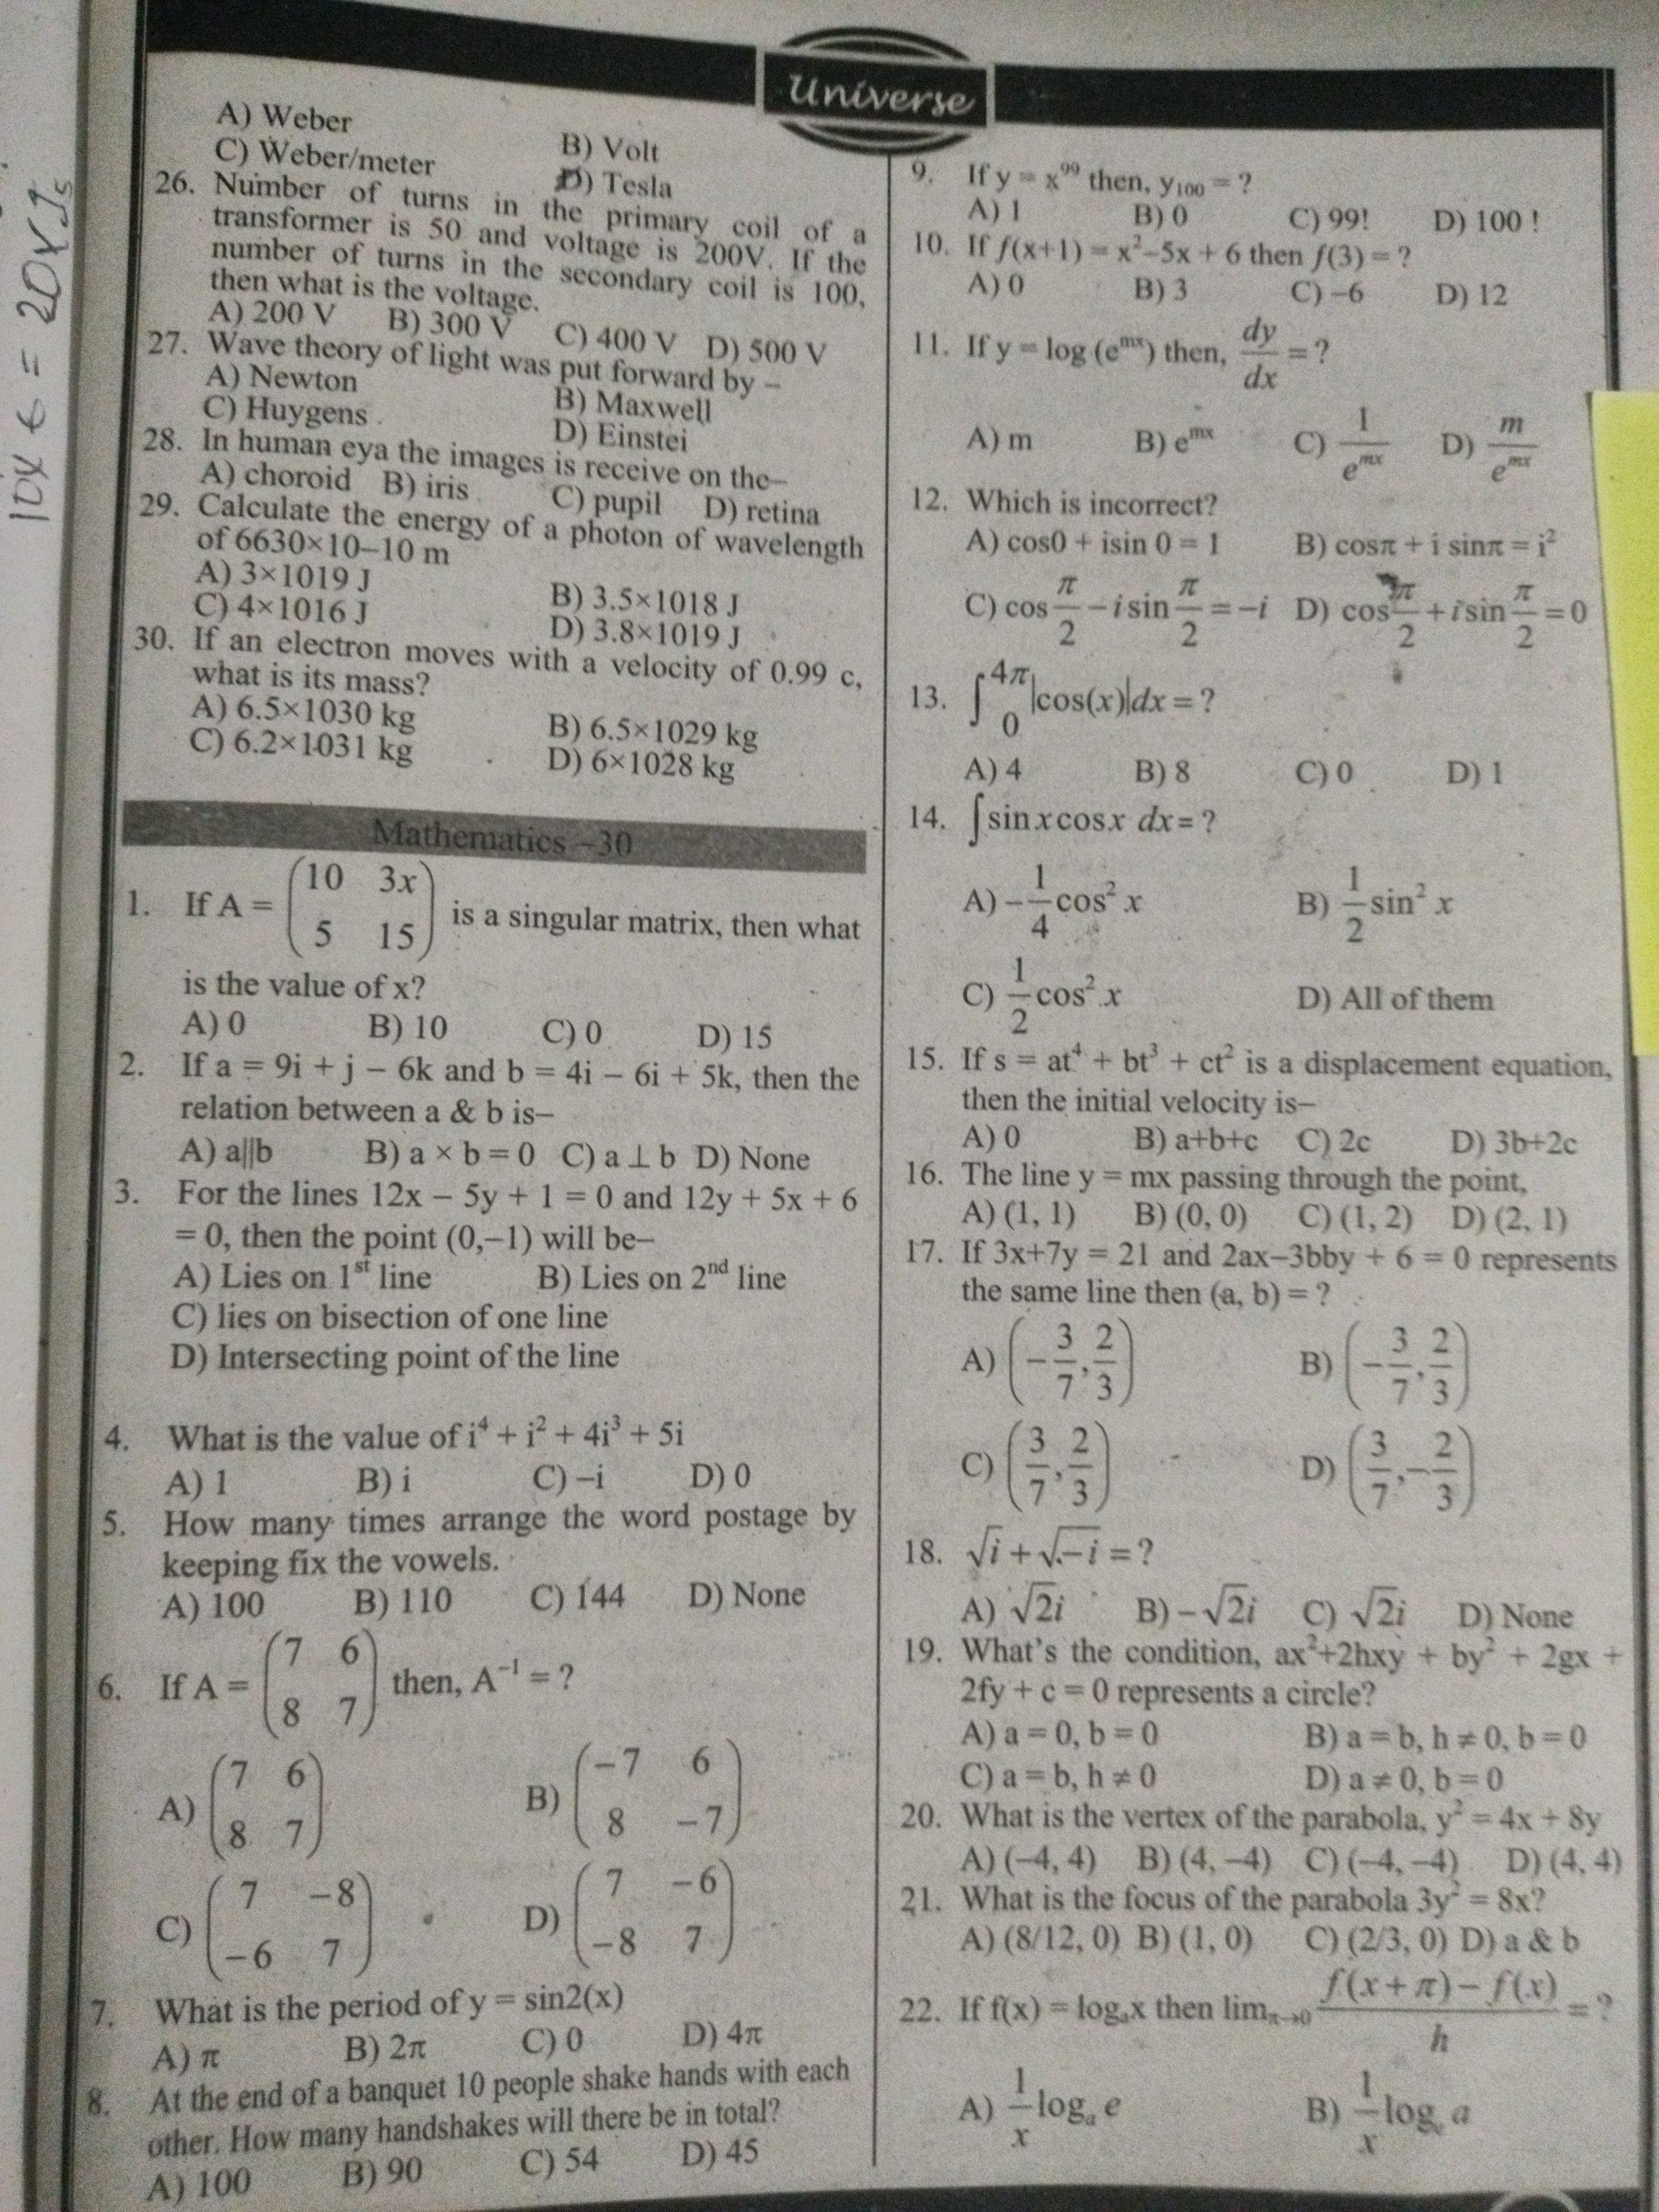 Universe
10x6 = 20xIs
A) Weber B) Volt
C) Weber/meter D) Tesla
26. Number of turns in the primary coil of a
transformer is 50 and voltage is 200V. If the
number of turns in the secondary coil is 100,
then what is the voltage.
A) 200 V B) 300 V C) 400 V D) 500 V
27. Wave theory of light was put forward by –
A) Newton B) Maxwell
C) Huygens D) Einstei
28. In human eya the images is receive on the–
A) choroid B) iris C) pupil D) retina
29. Calculate the energy of a photon of wavelength
of 6630×10–10 m
A) 3×1019 J B) 3.5×1018 J
C) 4×1016 J D) 3.8×1019 J
30. If an electron moves with a velocity of 0.99 c,
what is its mass?
A) 6.5×1030 kg B) 6.5×1029 kg
C) 6.2×1031 kg D) 6×1028 kg
Mathematics –30
1. If A = (10 3x
5 15) is a singular matrix, then what
is the value of x?
A) 0 B) 10 C) 0 D) 15
2. If a = 9i + j – 6k and b = 4i – 6i + 5k, then the
relation between a & b is–
A) a||b B) a × b = 0 C) a ⊥ b D) None
3. For the lines 12x – 5y + 1 = 0 and 12y + 5x + 6
= 0, then the point (0,–1) will be–
A) Lies on 1st line B) Lies on 2nd line
C) lies on bisection of one line
D) Intersecting point of the line
4. What is the value of i⁴ + i² + 4i³ + 5i
A) 1 B) i C) –i D) 0
5. How many times arrange the word postage by
keeping fix the vowels.
A) 100 B) 110 C) 144 D) None
6. If A = (7 6
8 7) then, A⁻¹ = ?
A) (7 6
8 7) B) (–7 6
8 –7)
C) (7 –8
–6 7) D) (7 –6
–8 7)
7. What is the period of y = sin2(x)
A) π B) 2π C) 0 D) 4π
8. At the end of a banquet 10 people shake hands with each
other. How many handshakes will there be in total?
A) 100 B) 90 C) 54 D) 45
9. If y = x⁹⁹ then, y₁₀₀ = ?
A) 1 B) 0 C) 99! D) 100 !
10. If f(x+1) = x²–5x + 6 then f(3) = ?
A) 0 B) 3 C) –6 D) 12
11. If y = log (eᵐˣ) then, dy/dx = ?
A) m B) eᵐˣ C) 1/eᵐˣ D) m/eᵐˣ
12. Which is incorrect?
A) cos0 + isin 0 = 1 B) cosπ + i sinπ = i²
C) cos π/2 – i sin π/2 = –i D) cos π/2 + i sin π/2 = 0
13. ∫₀^4π |cos(x)|dx = ?
A) 4 B) 8 C) 0 D) 1
14. ∫sin x cos x dx = ?
A) –1/4 cos² x B) 1/2 sin² x
C) 1/2 cos² x D) All of them
15. If s = at⁴ + bt³ + ct² is a displacement equation,
then the initial velocity is–
A) 0 B) a+b+c C) 2c D) 3b+2c
16. The line y = mx passing through the point,
A) (1, 1) B) (0, 0) C) (1, 2) D) (2, 1)
17. If 3x+7y = 21 and 2ax–3bby + 6 = 0 represents
the same line then (a, b) = ?
A) (–3/7, 2/3) B) (–3/7, 2/3)
C) (3/7, 2/3) D) (3/7, –2/3)
18. √i + √–i = ?
A) √2i B) –√2i C) √2i D) None
19. What's the condition, ax²+2hxy + by² + 2gx +
2fy + c = 0 represents a circle?
A) a = 0, b = 0 B) a = b, h ≠ 0, b = 0
C) a = b, h ≠ 0 D) a ≠ 0, b = 0
20. What is the vertex of the parabola, y² = 4x + 8y
A) (–4, 4) B) (4, –4) C) (–4, –4) D) (4, 4)
21. What is the focus of the parabola 3y² = 8x?
A) (8/12, 0) B) (1, 0) C) (2/3, 0) D) a & b
22. If f(x) = logₐx then lim π→0 f(x+π) – f(x)/h = ?
A) 1/x logₐ e B) 1/x log a